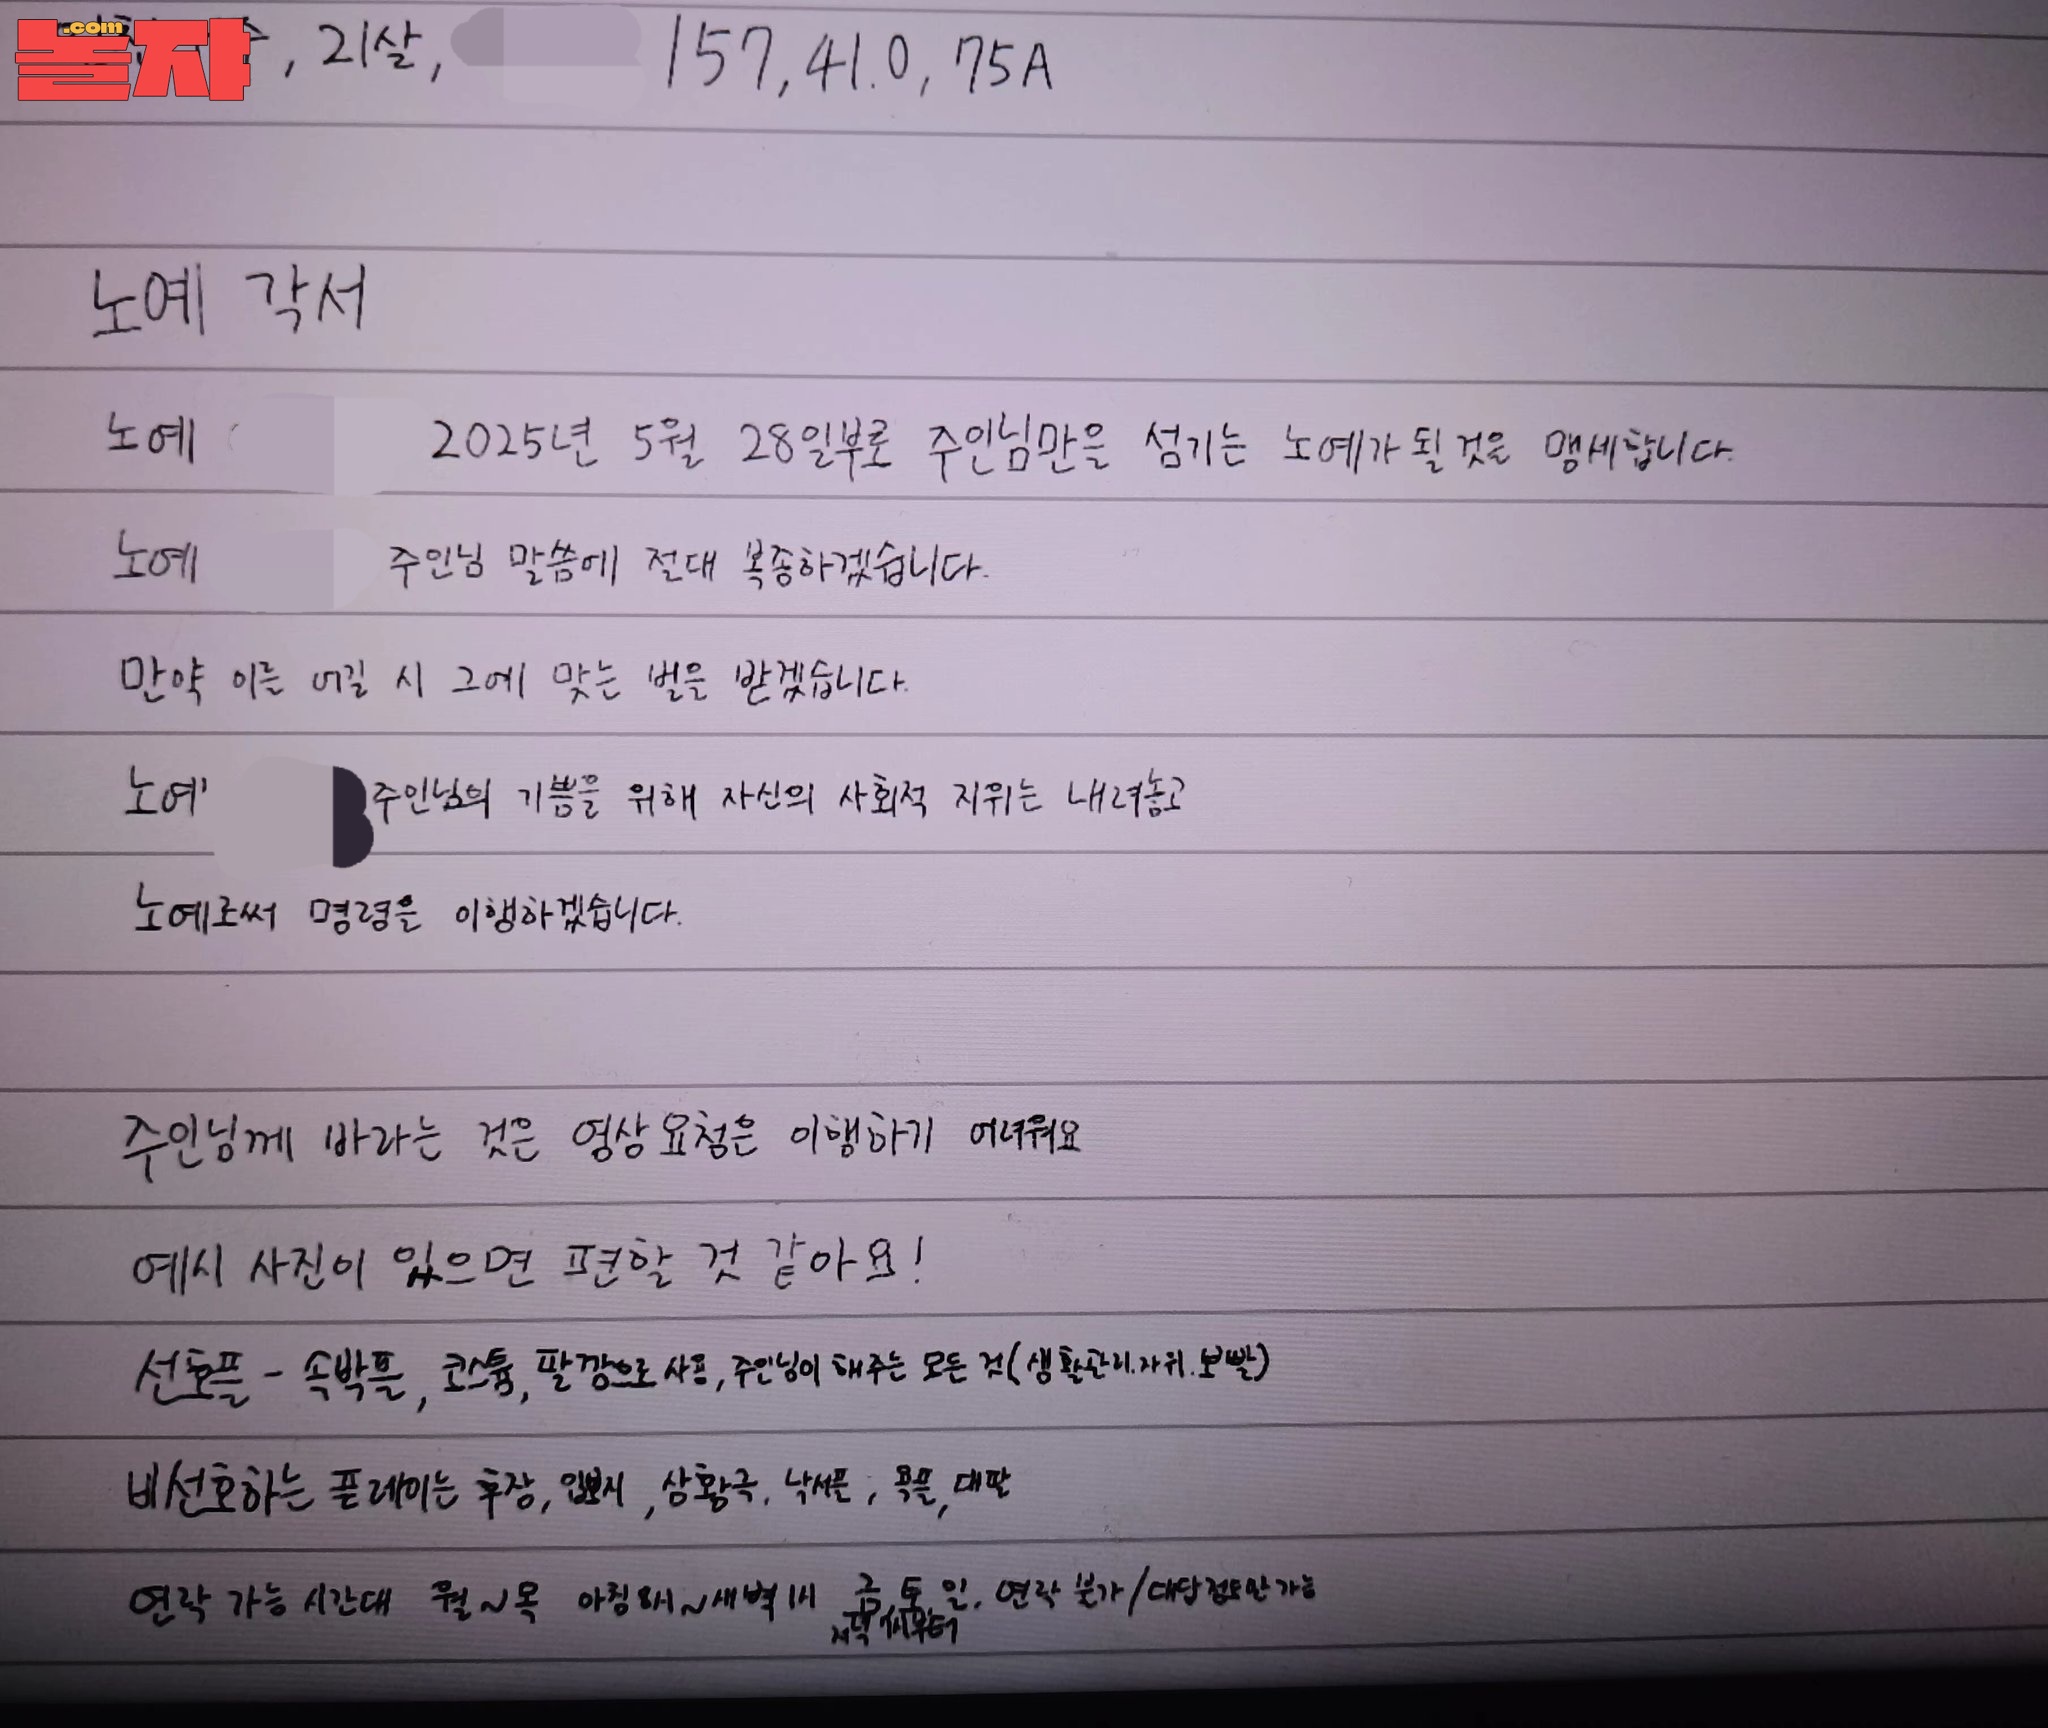 .com
놀쟈
, 21살, 157, 41.0, 75A
노예 각서
노예 2025년 5월 28일부로 주인님만을 섬기는 노예가 될 것을 맹세합니다.
노예 주인님 말씀에 절대 복종하겠습니다.
만약 이를 어길 시 그에 맞는 벌을 받겠습니다.
노예 주인님의 기쁨을 위해 자신의 사회적 지위는 내려놓고
노예로써 명령을 이행하겠습니다.
주인님께 바라는 것은 영상 요청은 이행하기 어려워요
예시 사진이 있으면 편할 것 같아요!
선호플 - 속박플, 코스튬, 팔깡으로 사용, 주인님이 해주는 모든 것(생활관리.자위.보빨)
비선호하는 플레이는 후장, 입보지, 상황극, 낙서플, 폭플, 대딸
연락 가능 시간대 월~목 아침 8시~새벽 1시 금, 토, 일. 연락 불가/대답 정도만 가능
저녁 시부터